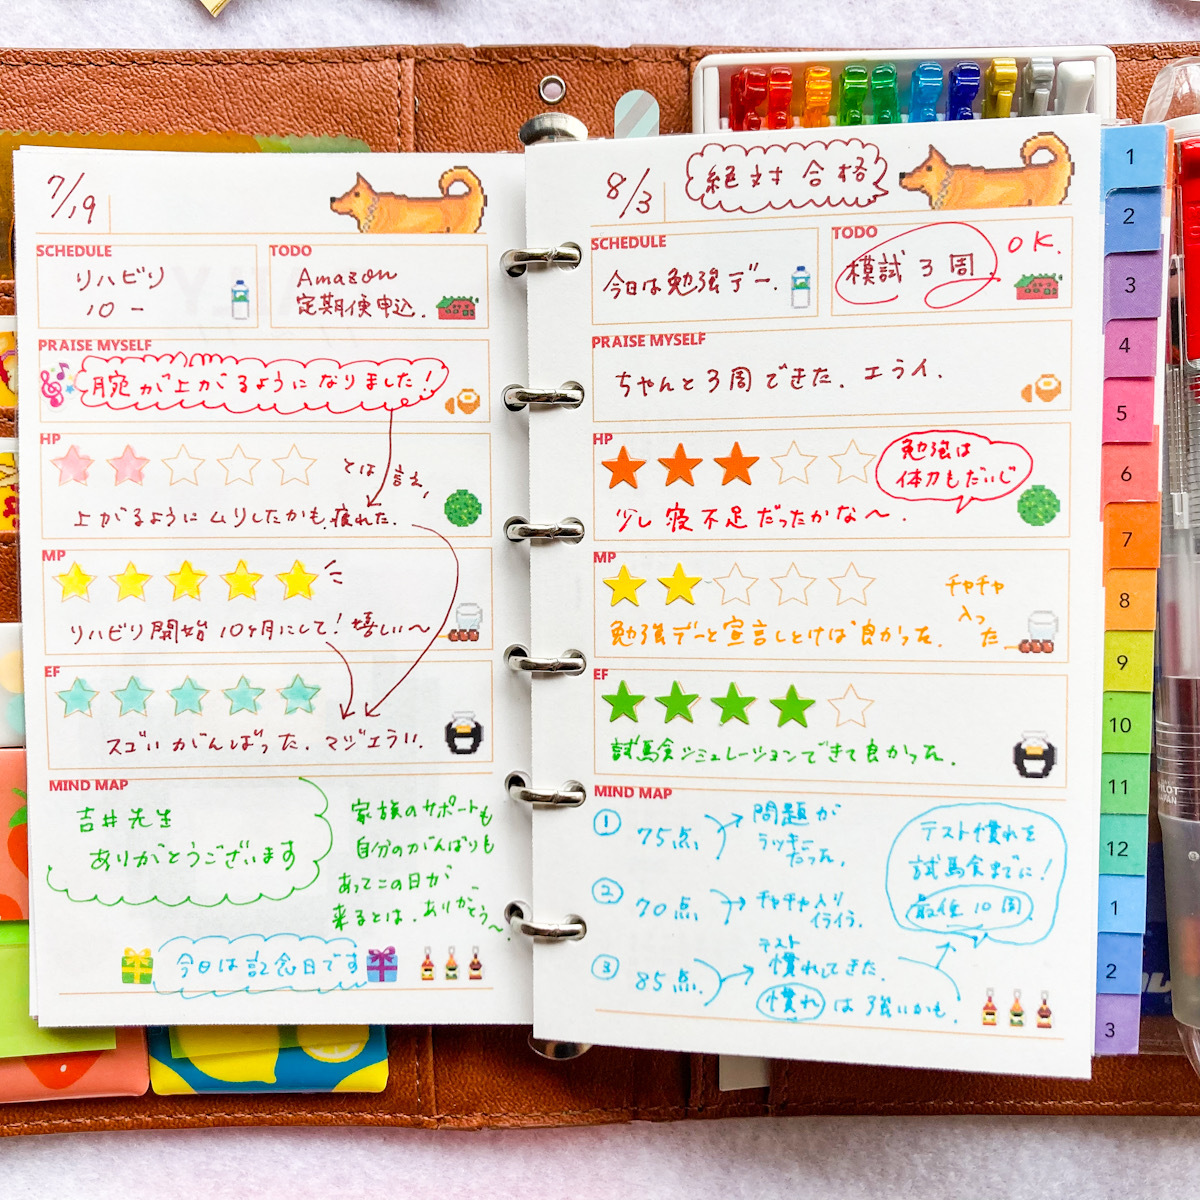 7/19
SCHEDULE
リハビリ
10ー
TODO
Amazon
定期便申込.
PRAISE MYSELF
腕が上がるようになりました!
HP
とは言え,
上がるようにムリしたかも.疲れた.
MP
リハビリ開始10ヶ月にして!嬉しい〜
EF
スゴいがんばった.マジエラい.
MIND MAP
吉井先生
ありがとうございます
家族のサポートも
自分のがんばりも
あってこの日が
来るとは、ありがとう〜.
今日は記念日です
8/3
絶対合格
SCHEDULE
今日は勉強デー.
TODO
模試3周
OK.
PRAISE MYSELF
ちゃんと3周できた.エライ.
HP
勉強は
体力もだいじ
少し寝不足だったかな〜.
MP
チャチャ
入っ
た
勉強デーと宣言しとけば良かった.
EF
試験シミュレーションできて良かった.
MIND MAP
① 75点
問題が
ラッキー
だった.
② 70点
チャチャ入り
イライラ.
③ 85点.
テスト
慣れしてきた.
慣れは強いかも.
テスト慣れを
試験までに!
最低10周
1
2
3
4
5
6
7
8
9
10
11
12
1
2
3
PILOT
JAPAN